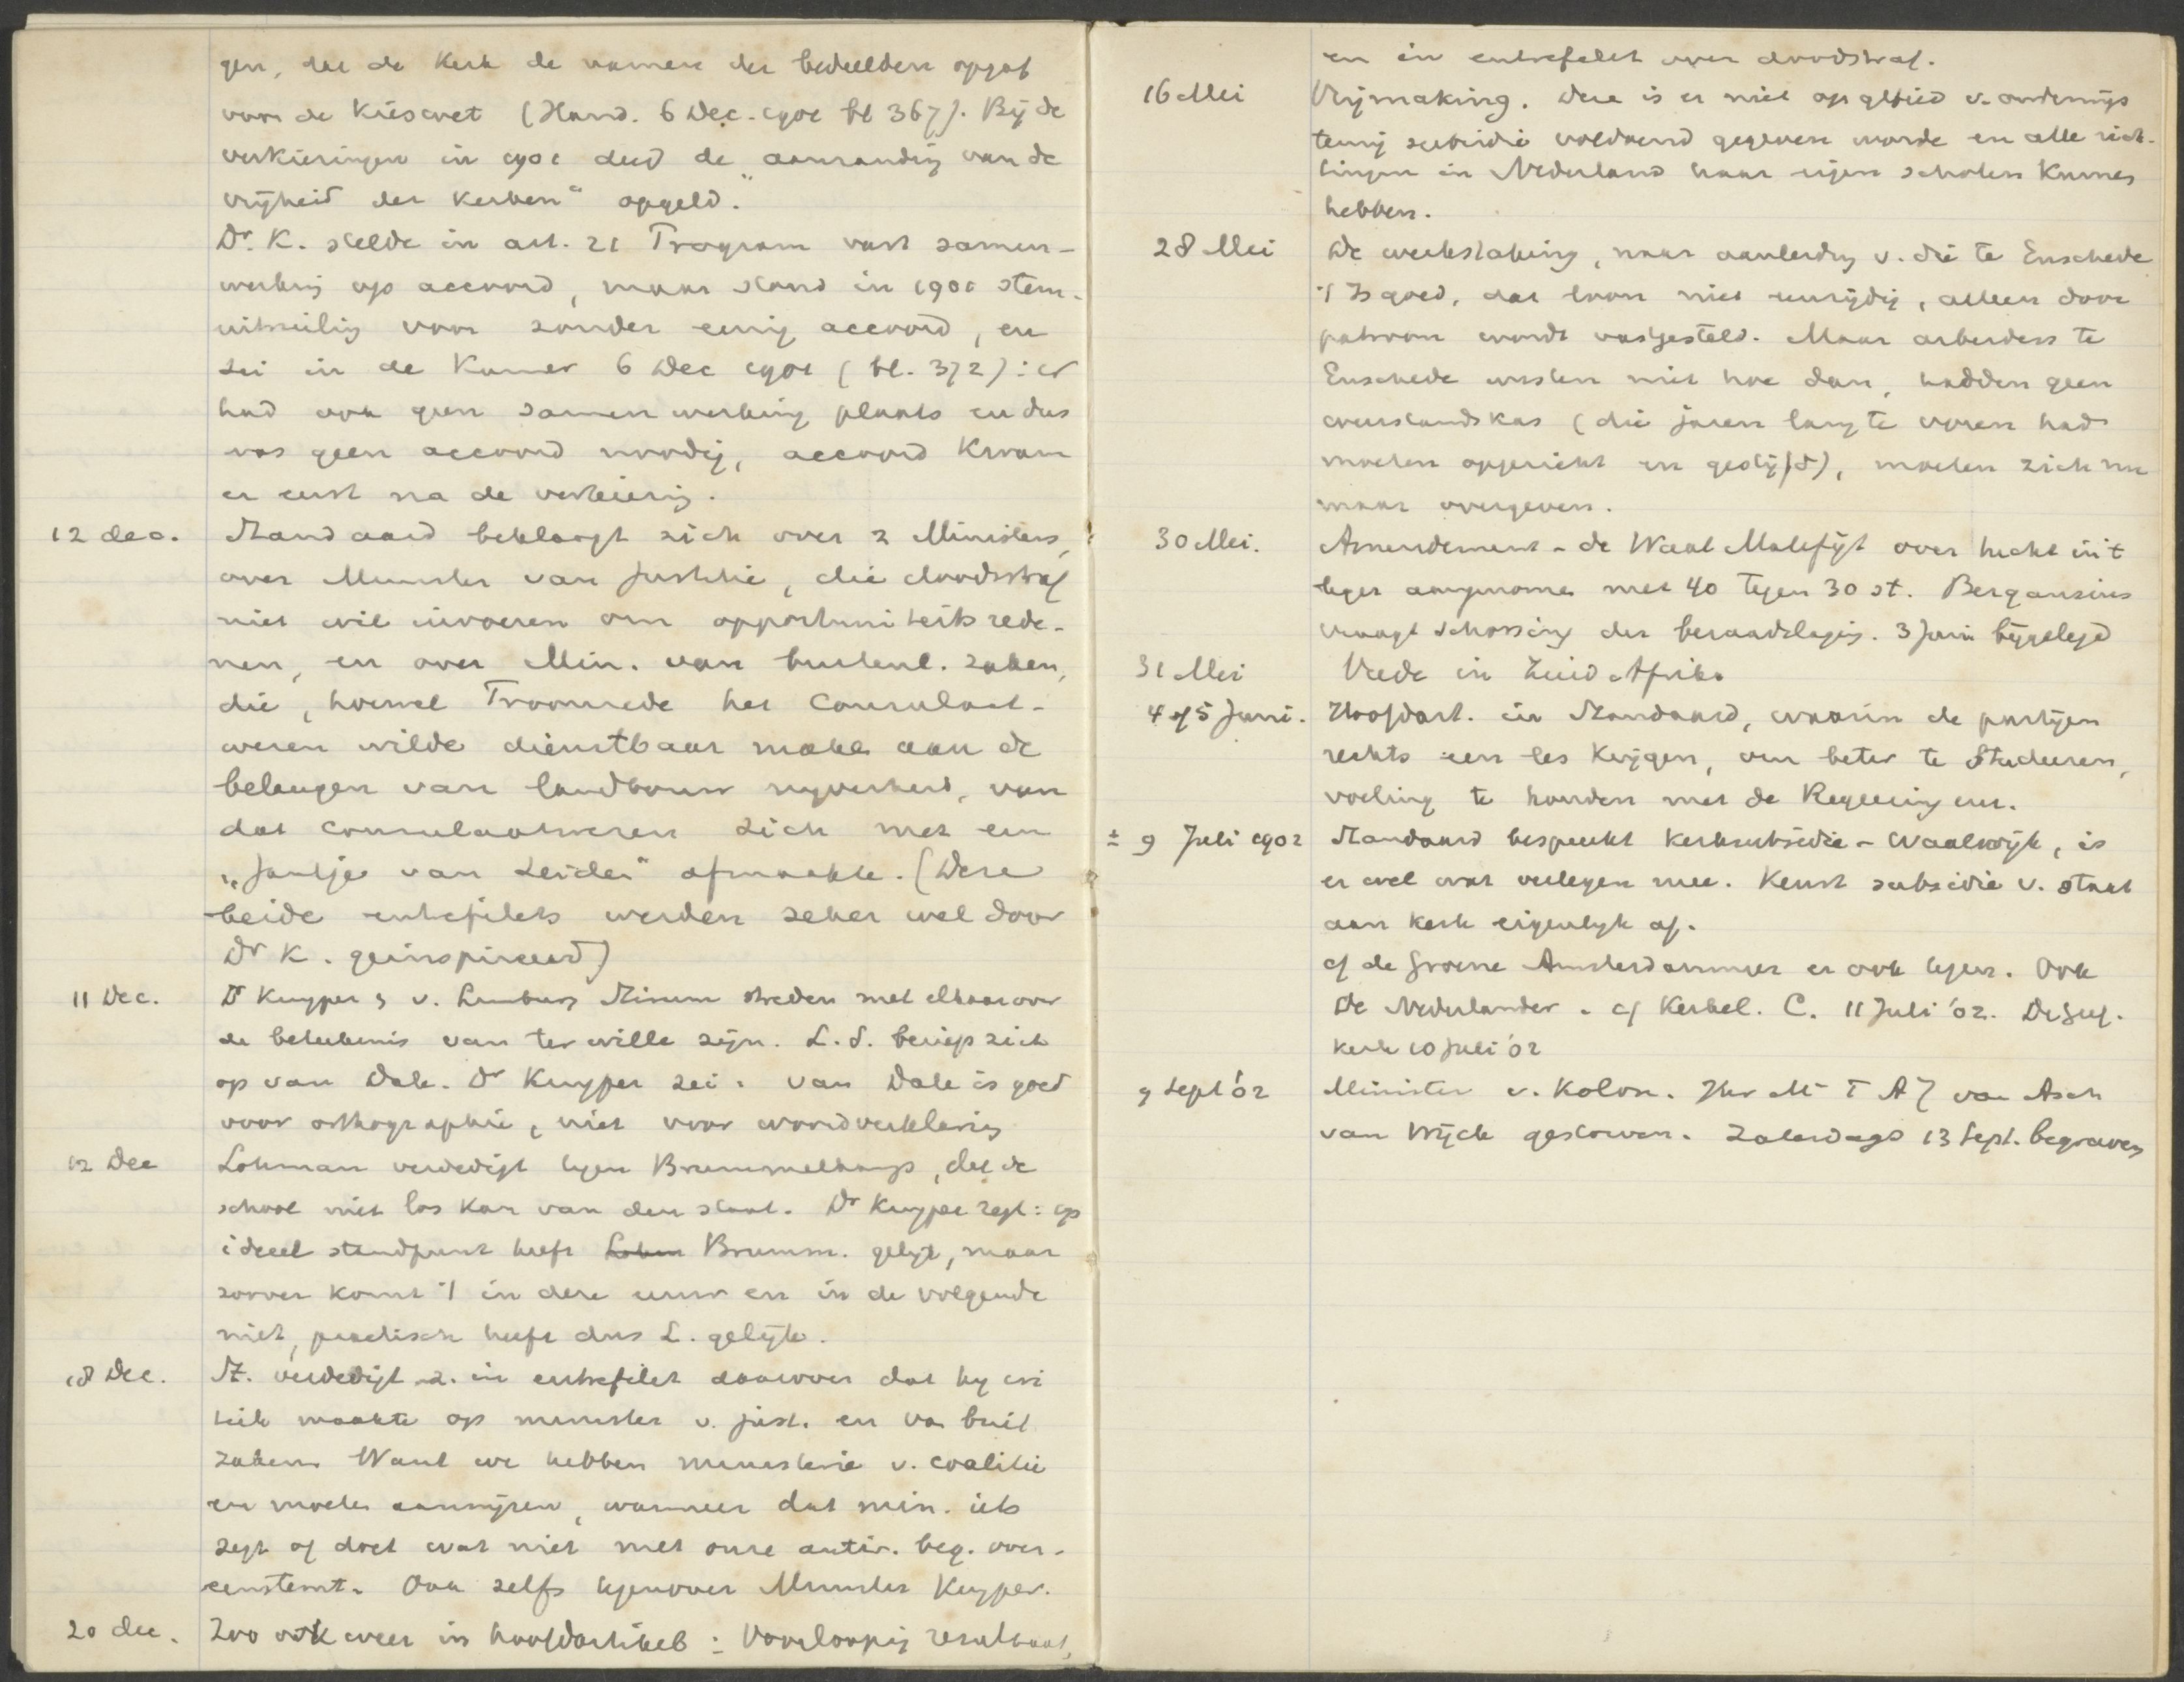 gen, dat de Kerk de namen der bedeelden opgaf
voor de Kieswet (Hand. 6 Dec. 1901 bl 367). Bij de
verkiezingen in 1901 deed de „aanranding van de
vrijheid der Kerken" opgeld.
Dr. K. stelde in art. 21 Program vast samen-
werking op accoord, maar stond in 1901 stem-
uitruiling voor zonder eenig accoord, en
zei in de Kamer 6 Dec 1901 (bl. 372): er
had ook geen samenwerking plaats en dus
was geen accoord noodig, accoord kwam
er eerst na de verkiezing.
12 dec. Standaard beklaagt zich over 2 Ministers,
over Minister van Justitie, die doodstraf
niet wil invoeren om opportuniteits rede-
nen, en over Min. van buitenl. zaken,
die, hoewel Troonrede het Consulaat-
wezen wilde dienstbaar maken aan de
belangen van landbouw nyverheid, van
dat consulaatwezen zich met een
„Jantje van Leiden" afmaakte. (Deze
beide entrefilets werden zeker wel door
Dr K. geinspireerd)
11 Dec. Dr Kuyper & v. Limburg Stirum streden met elkaar over
de beteekenis van ter wille zijn. L.S. beriep zich
op van Dale. Dr Kuyper zei: van Dale is goed
voor orthographie, niet voor woordverklaring
12 Dec Lohman verdedigt tegen Brummelkamp, dat de
school niet los kan van den staat. Dr Kuyper zegt: op
ideeel standpunt heeft Lohm Brumm. gelijk, maar
zoover komt 't in deze eeuw en in de volgende
niet, practisch heeft dus L. gelijk.
18 Dec. St. verdedigt z. in entrefilet daarover dat hy cri
tiek maakte op minister v. just. en van buit
zaken. Want we hebben ministerie v. coalitie
en moeten aanwijzen, wanneer dat min. iets
zegt of doet wat niet met onze antir. beg. over-
eenstemt. Ook zelfs tegenover Minister Kuyper.
20 dec. Zoo ook weer in hoofdartikel: Voorloopig resultaat,
en in entrefilet over doodstraf.
16 Mei Vrijmaking. Deze is er niet op gebied v. onderwijs
tenzij subsidie voldoend gegeven worde en alle rich-
tingen in Nederland haar eigen scholen kunnen
hebben.
28 Mei De werkstaking, naar aanleiding v. die te Enschede
't Is goed, dat loon niet eenzijdig, alleen door
patroon wordt vastgesteld. Maar arbeiders te
Enschede wisten niet hoe dan, hadden geen
weerstandskas (die jaren lang te voren had
moeten opgericht en gestijfd), moeten zich nu
maar overgeven.
30 Mei. Amendement - de Waal Malefijt over hecht in 't
leger aangenomen met 40 tegen 30 st. Bergansius
vraagt schorsing der beraadslaging. 3 Juni bijgelegd
31 Mei Vrede in Zuid Afrika
4 of 5 Juni. Hoofdart. in Standaard, waarin de partijen
rechts een les krijgen, om beter te studeeren,
voeling te houden met de Regeering enz.
± 9 Juli 1902 Standaard bespreekt Kerksubsidie - Waalwijk, is
er wel wat verlegen mee. Keurt subsidie v. staat
aan kerk eigenlyk af.
cf de Groene Amsterdammer er ook tegen. Ook
De Nederlander. cf Kerkel. C. 11 Juli '02. De Gef.
kerk 10 Juli '02
9 Sept '02 Minister v. Kolon. Jhr Mr T A J van Asch
van Wijck gestorven. Zaterdags 13 Sept. begraven